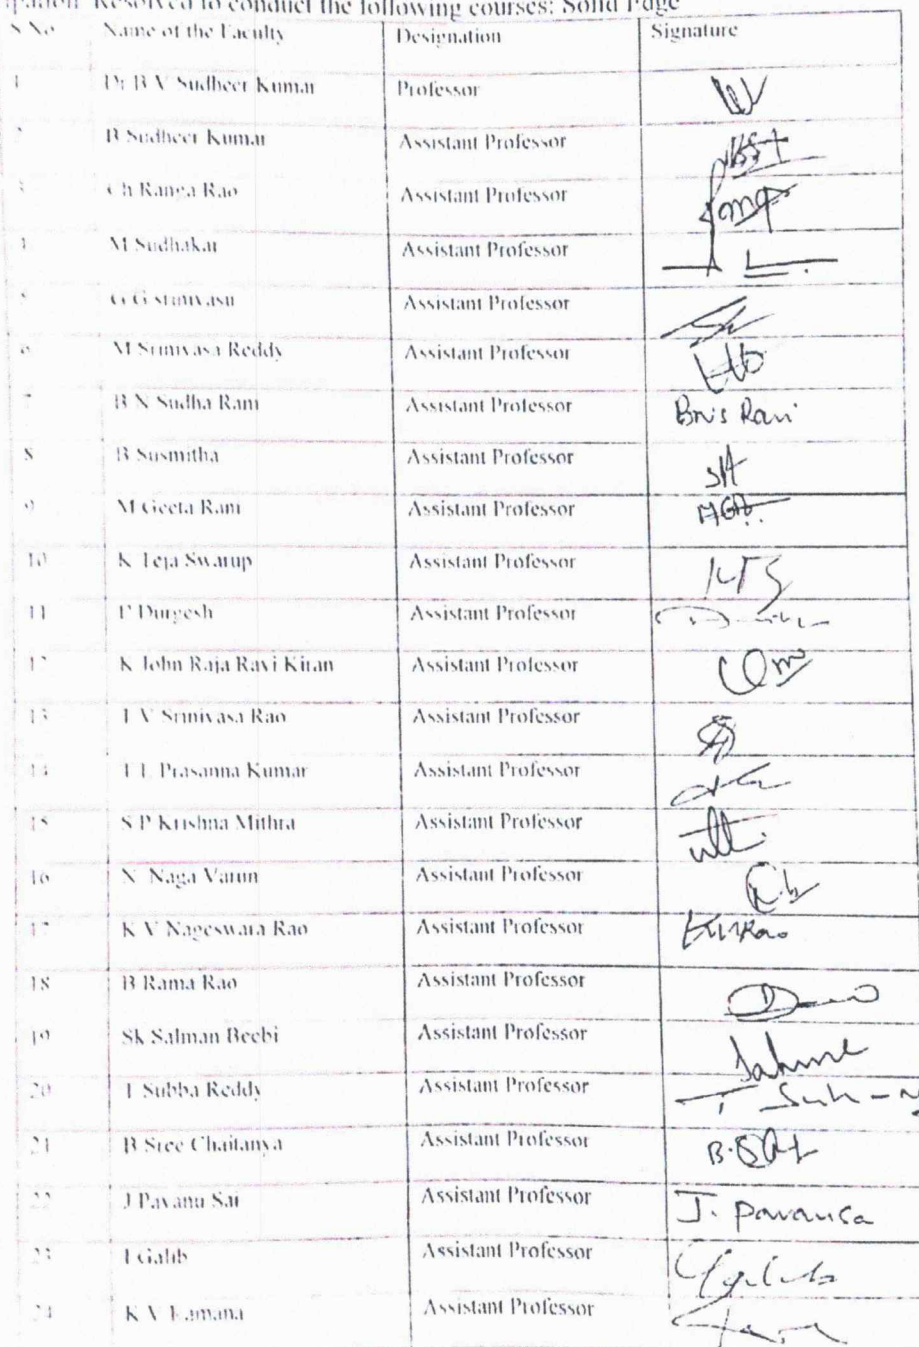 Resolved to conduct the following courses: Solid Edge
S No Name of the Faculty Designation Signature
1 Dr B V Sudheer Kumar Professor
2 B Sudheer Kumar Assistant Professor
3 Ch Ranga Rao Assistant Professor
4 M Sudhakar Assistant Professor
5 G G srinivasu Assistant Professor
6 M Srinivasa Reddy Assistant Professor
7 B N Sudha Rani Assistant Professor
8 B Susmitha Assistant Professor
9 M Geeta Rani Assistant Professor
10 K Teja Swarup Assistant Professor KTS
11 P Durgesh Assistant Professor
12 K John Raja Ravi Kiran Assistant Professor
13 T V Srinivasa Rao Assistant Professor
14 Prasanna Kumar Assistant Professor
15 S P Krishna Mithra Assistant Professor
16 N Naga Varun Assistant Professor
17 K V Nageswara Rao Assistant Professor
18 B Rama Rao Assistant Professor
19 Sk Salman Beebi Assistant Professor
20 T Subba Reddy Assistant Professor
21 B Sree Chaitanya Assistant Professor
22 J Pavani Sai Assistant Professor J. Pavanisa
23 Galib Assistant Professor
24 K V Ramana Assistant Professor